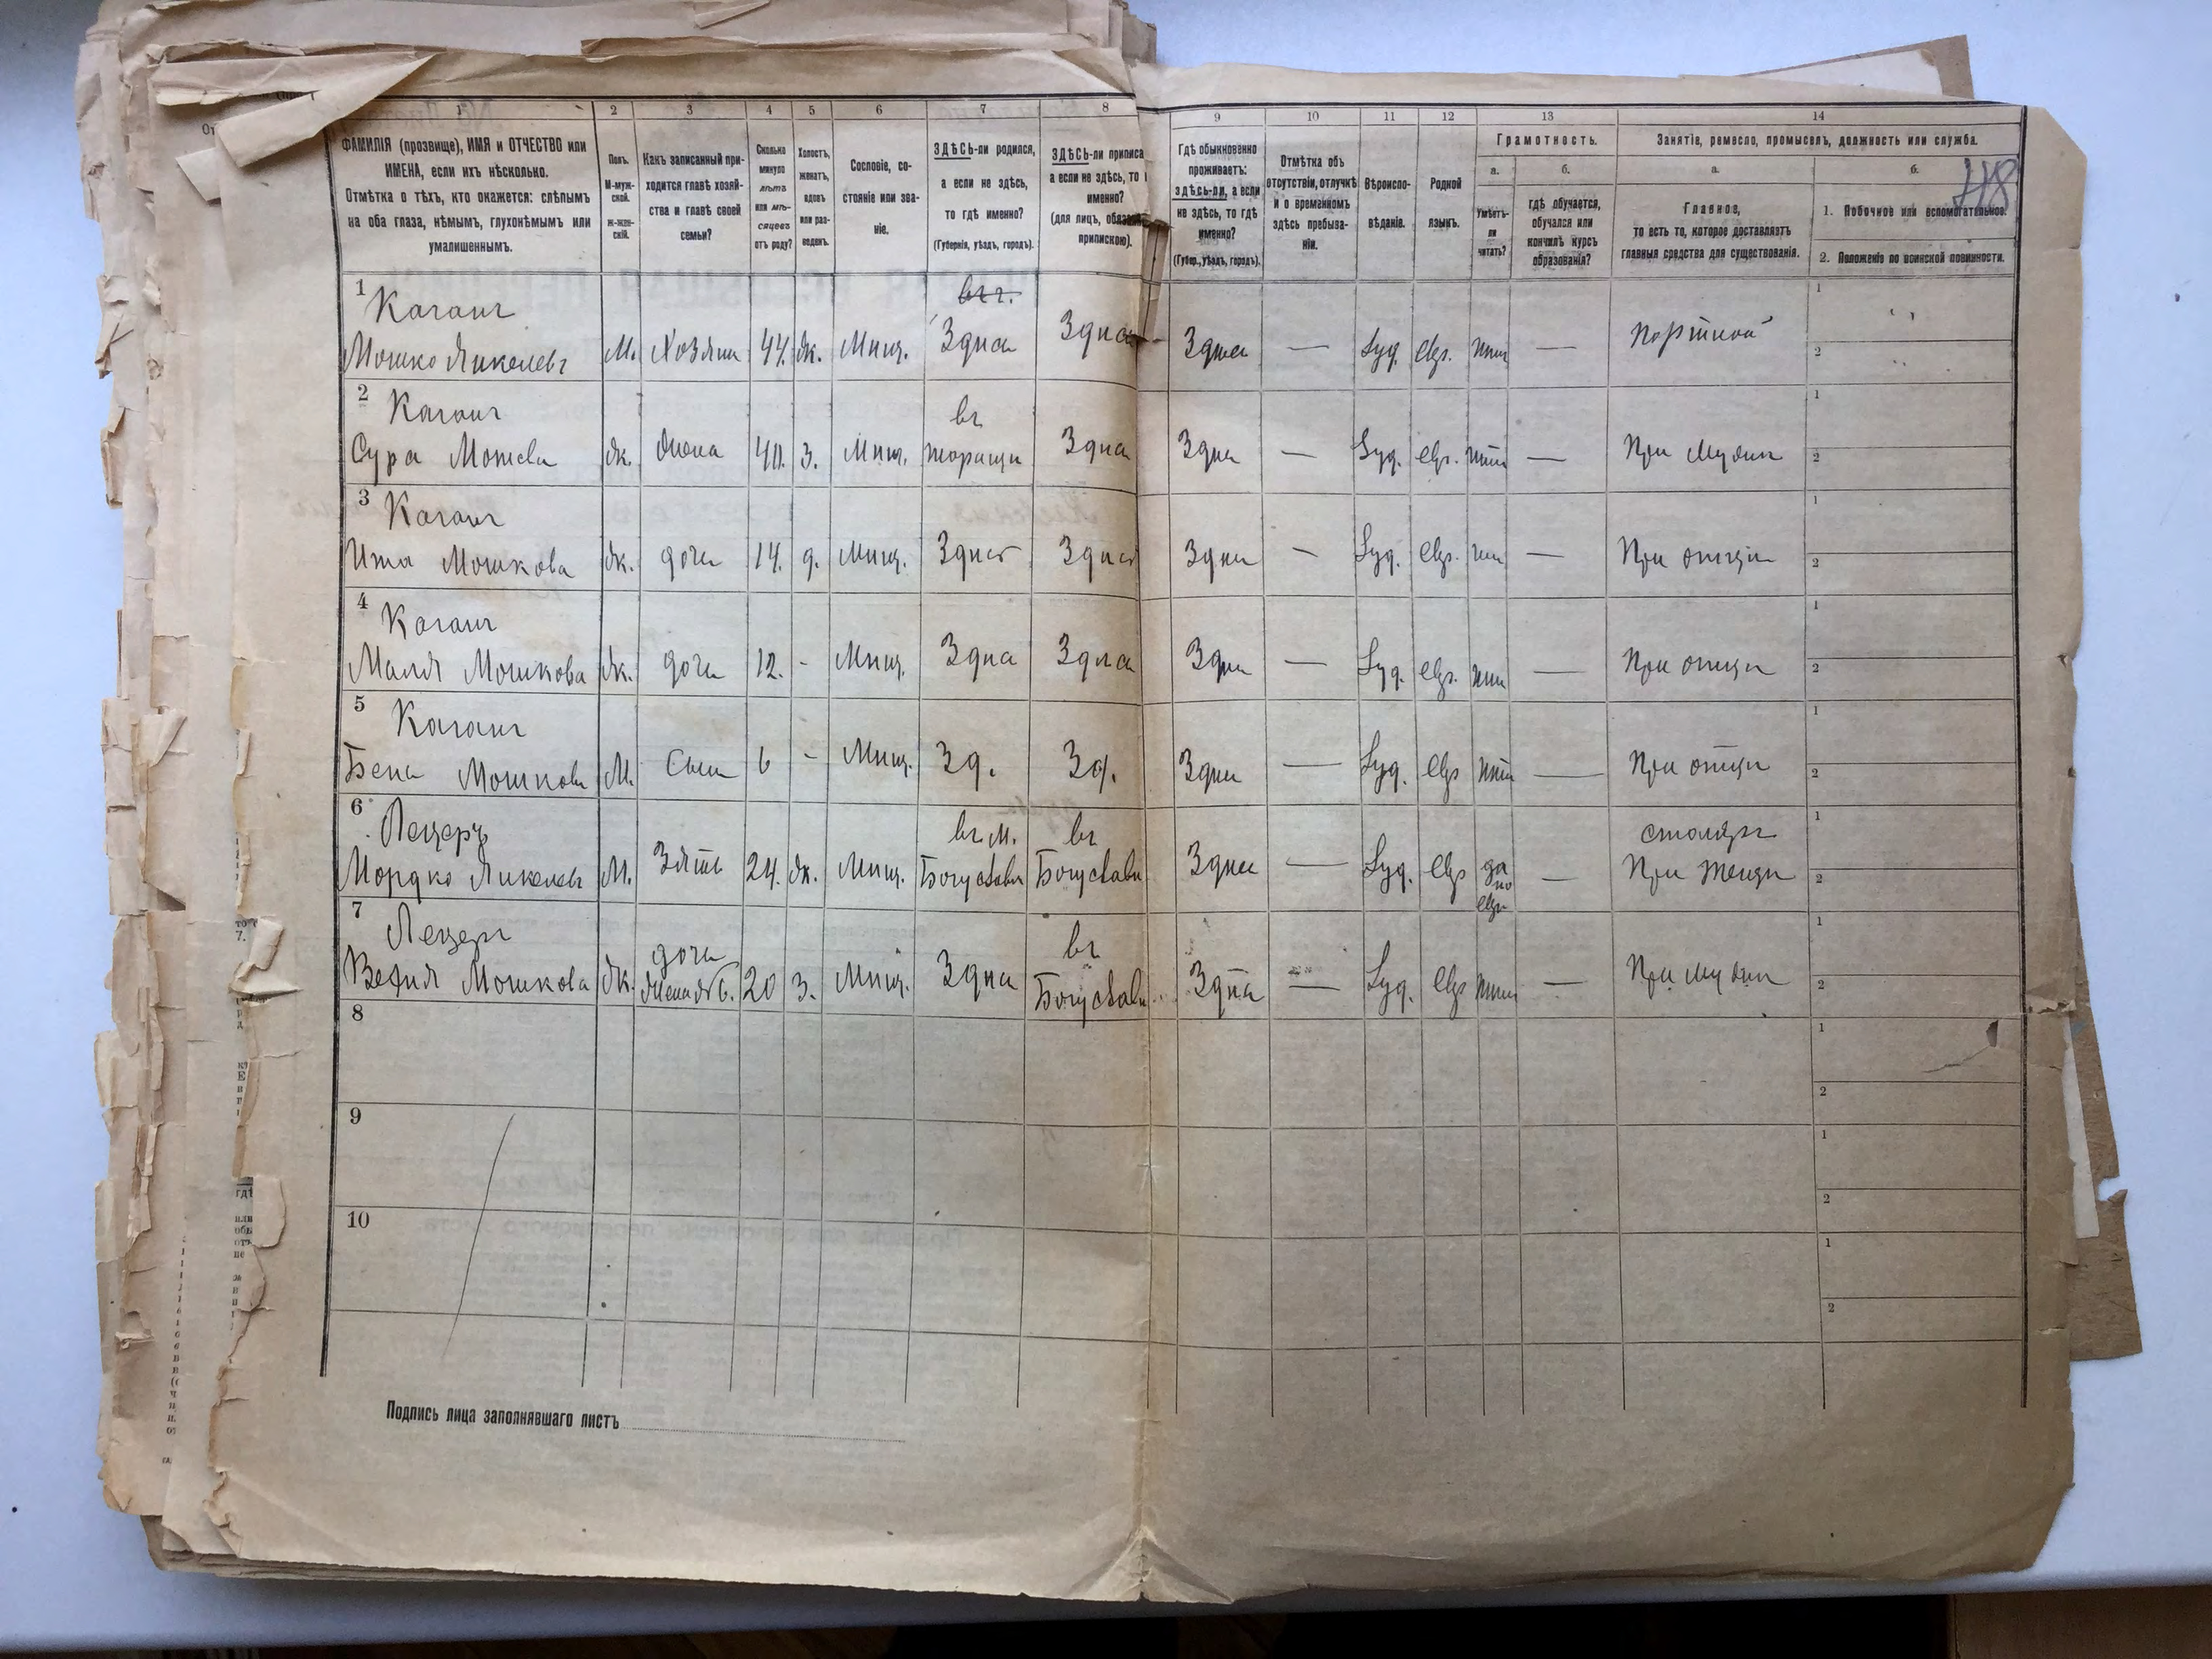 1 2 3 4 5 6 7 8 9 10 11 12 13 14
ФАМИЛІЯ (прозвище), ИМЯ и ОТЧЕСТВО или
ИМЕНА, если ихъ нѣсколько.
Отмѣтка о тѣхъ, кто окажется: слѣпымъ
на оба глаза, нѣмымъ, глухонѣмымъ или
умалишеннымъ.
Полъ.
М-муж-
ской.
ж-жен-
скій.
Какъ записанный при-
ходится главѣ хозяй-
ства и главѣ своей
семьи?
Сколько
минуло
лѣтъ
или мѣ-
сяцевъ
отъ роду?
Холостъ,
женатъ,
вдовъ
или раз-
веденъ.
Сословіе, со-
стояніе или зва-
ніе.
ЗДѢСЬ-ли родился,
а если не здѣсь,
то гдѣ именно?
(Губернія, уѣздъ, городъ).
ЗДѢСЬ-ли приписа
а если не здѣсь, то
именно?
(для лицъ, обязан
припискою).
Гдѣ обыкновенно
проживаетъ:
здѣсь-ли, а если
не здѣсь, то гдѣ
именно?
(Губер., уѣздъ, городъ).
Отмѣтка объ
отсутствіи, отлучкѣ
и о временномъ
здѣсь пребыва-
ніи.
Вѣроиспо-
вѣданіе.
Родной
языкъ.
Грамотность.
а.
Умѣетъ-
ли
читать?
б.
гдѣ обучается,
обучался или
кончилъ курсъ
образованія?
Занятіе, ремесло, промыселъ, должность или служба.
а.
Главное,
то есть то, которое доставляетъ
главныя средства для существованія.
б.
1. Побочное или вспомогательное.
2. Положеніе по воинской повинности.
118
1 Каганъ
Мошко Янкелевъ М. Хозяин 44. ж. Мищ. Здиа Здиа Здиа — Іуд. евр. нит — портной 1 2
2 Каганъ въ
Сура Мошева ж. жена 40. з. Мищ. таращи Здиа Здиа — Іуд. евр. нит — При мужи 1 2
3 Каганъ
Ита Мошкова ж. дочи 14. д. Мищ. Здиа Здиа Здиа — Іуд. евр. нит — При отци 1 2
4 Каганъ
Маля Мошкова ж. дочи 12. - Мищ. Здиа Здиа Здиа — Іуд. евр. нит — При отци 1 2
5 Каганъ
Бена Мошковъ М. Сын 6 - Мищ. Зд. Зд. Здиа — Іуд. евр нит — При отци 1 2
6 въ м. въ столяръ
Мордко Янкелевъ М. Зять 24. ж. Мищ. Богуславы Богуславы Здиа — Іуд. евр да по евр — При 1 2
7 дочи въ
Мошкова ж. жена №6. 20 з. Мищ. Здиа Богуславы Здиа — Іуд. евр нит — При мужи 1 2
8 1 2
9 1 2
10 1 2
Подпись лица заполнявшаго листъ